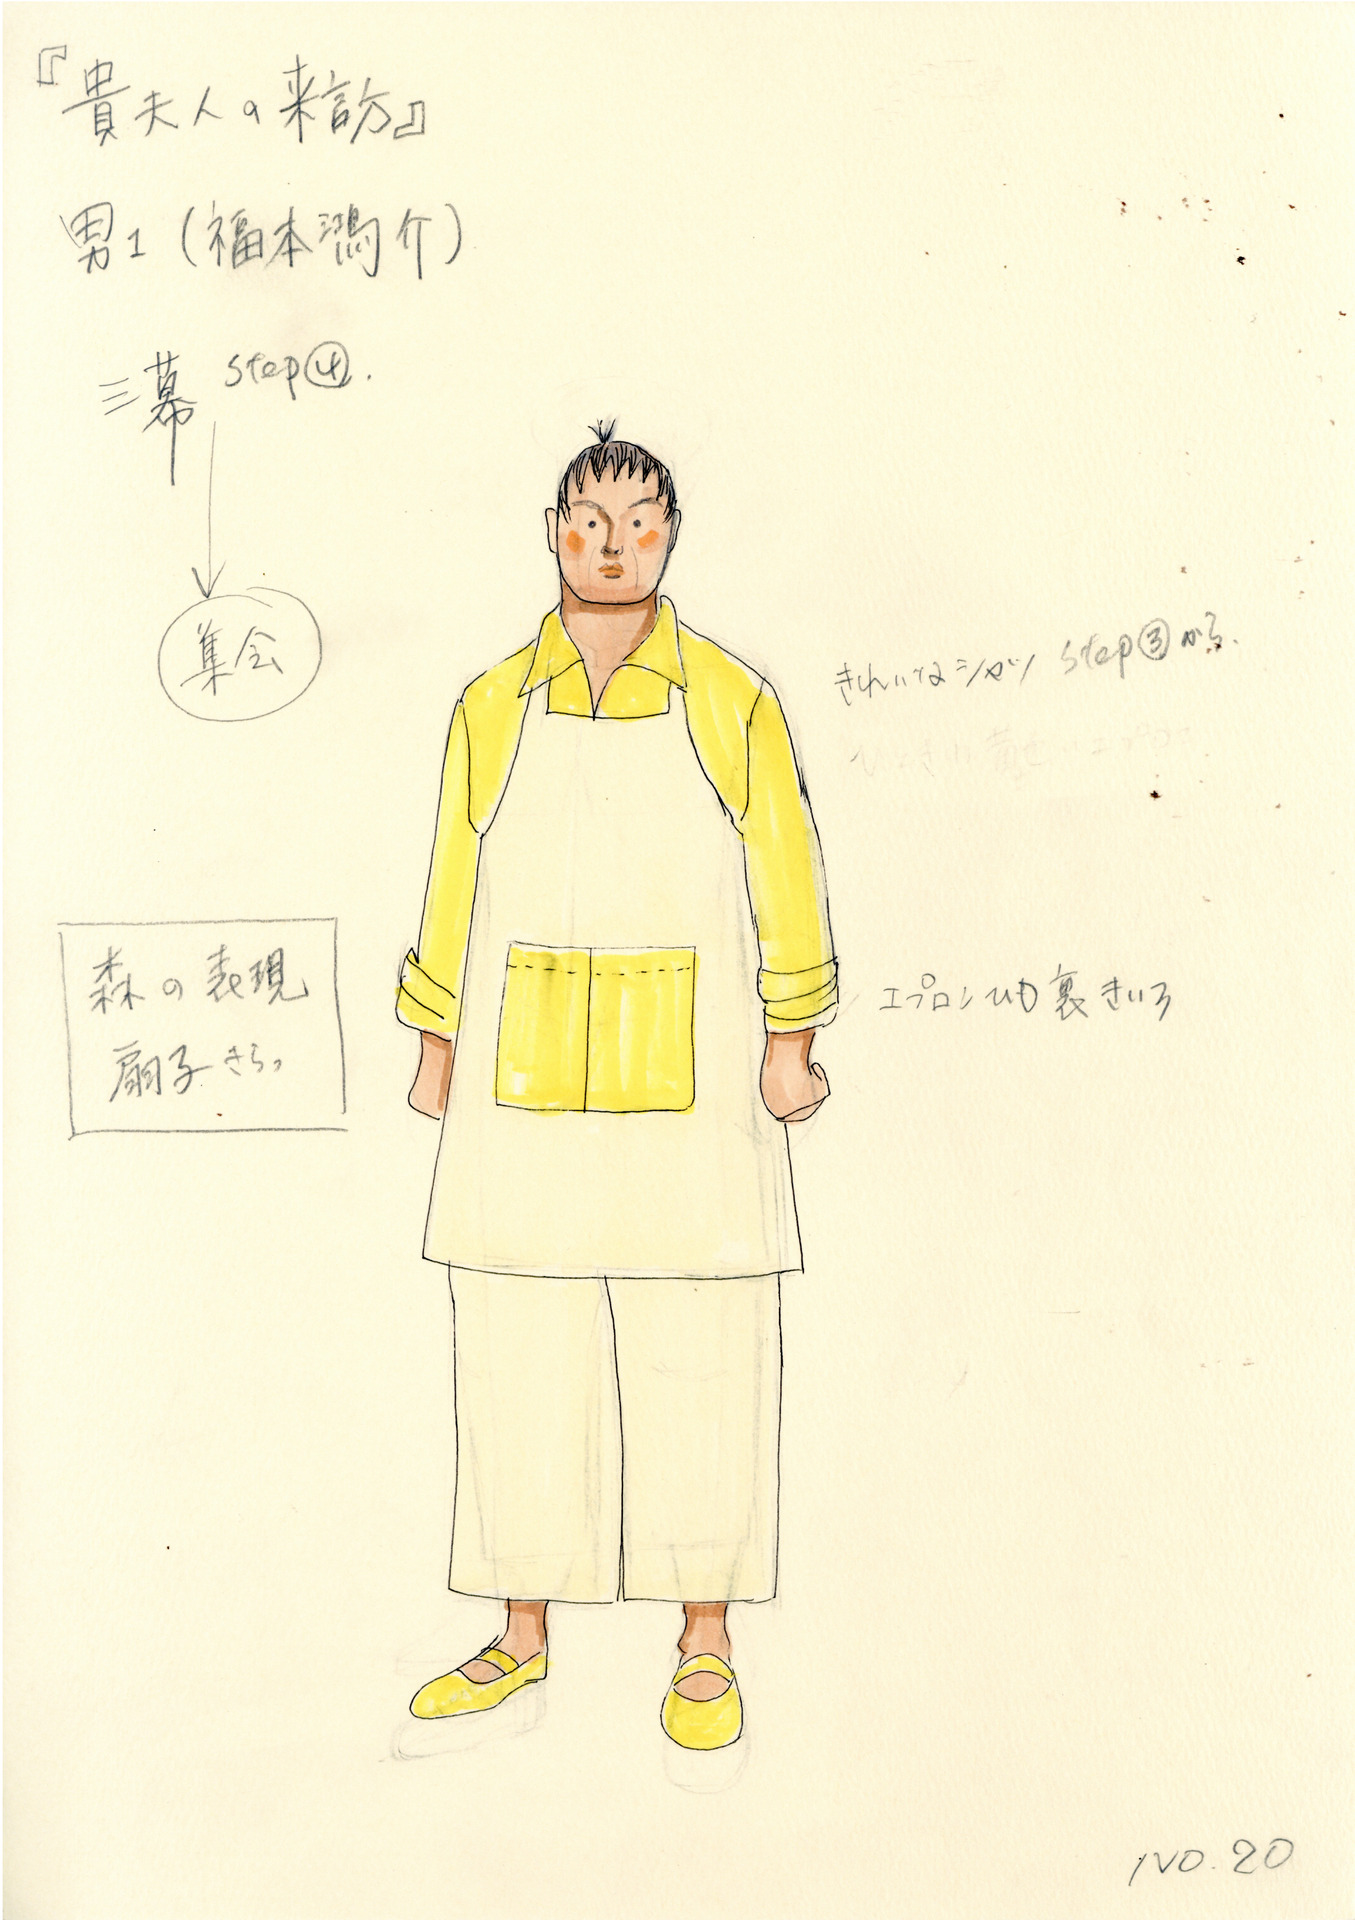 『貴夫人の来訪』
男1（福本鴻介）
三幕 step④.
集会
きれいなシャツ step③から.
森の表現
扇子きらっ
エプロンひも裏きいろ
NO.20